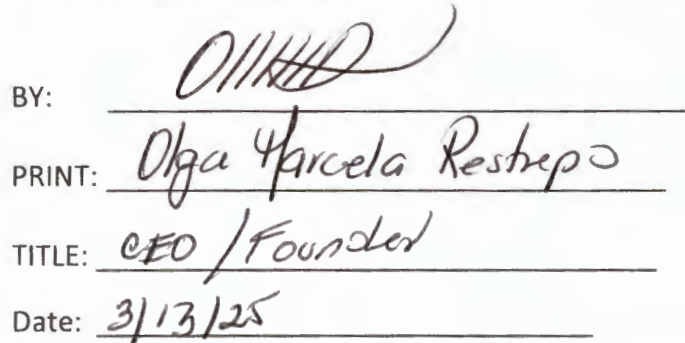 BY:
PRINT: Olga Marcela Restrepo
TITLE: CEO / Founder
Date: 3/13/25